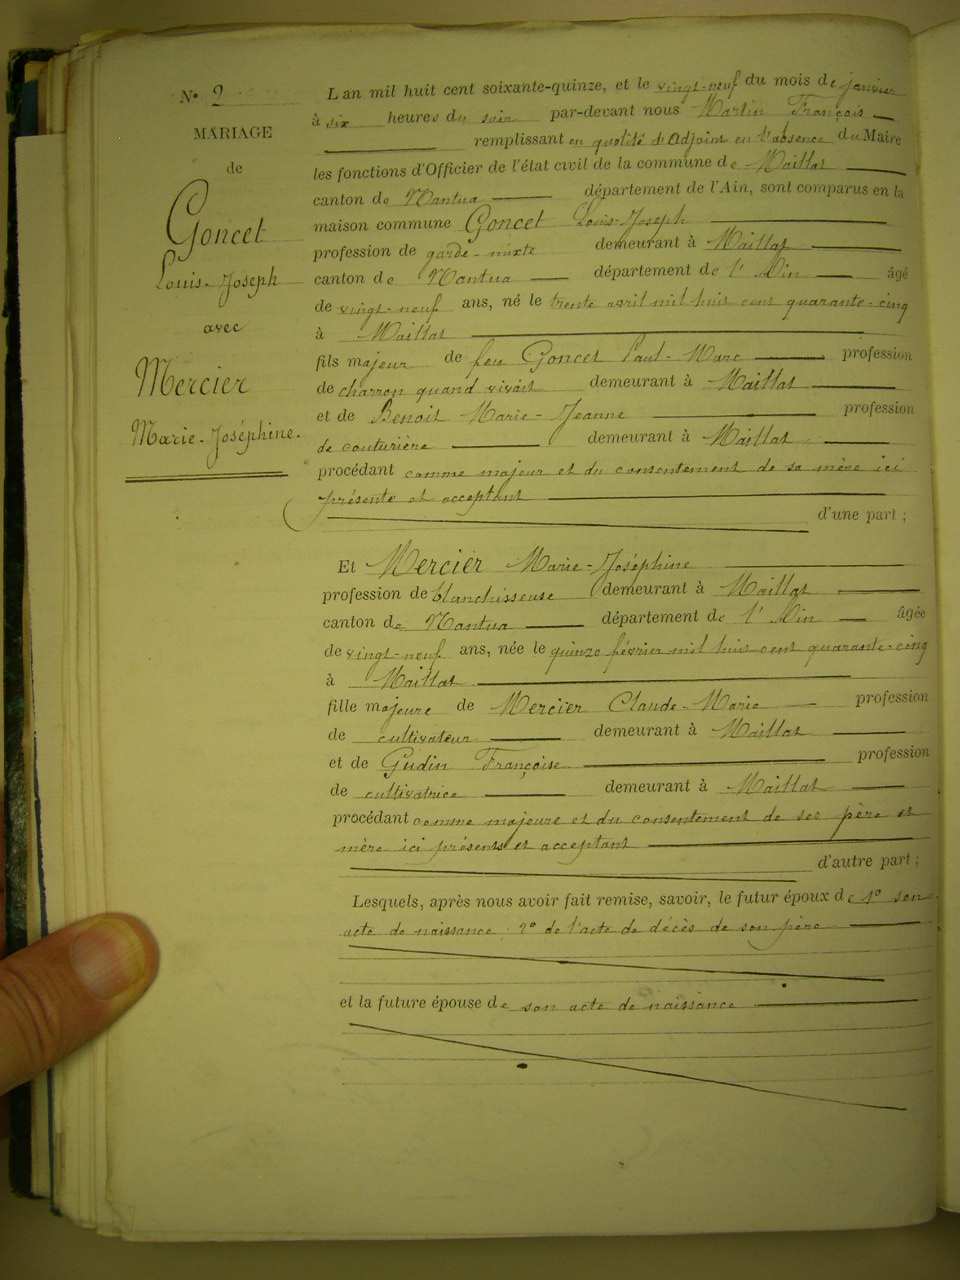 N° 2
MARIAGE
de
Goncet
Louis-Joseph
avec
Mercier
Marie-Joséphine.
L'an mil huit cent soixante-quinze, et le vingt-neuf du mois de janvier
à six heures du soir par-devant nous Martin François
remplissant en qualité d'Adjoint en l'absence du Maire
les fonctions d'Officier de l'état civil de la commune de Maillat
canton de Nantua département de l'Ain, sont comparus en la
maison commune Goncet Louis-Joseph
profession de garde-mixte demeurant à Maillat
canton de Nantua département de l'Ain âgé
de vingt-neuf ans, né le trente avril mil huit cent quarante-cinq
à Maillat
fils majeur de feu Goncet Paul-Marc profession
de charron quand vivait demeurant à Maillat
et de Benoit Marie-Jeanne profession
de couturière demeurant à Maillat
procédant comme majeur et du consentement de sa mère ici
présente et acceptant
d'une part ;
Et Mercier Marie-Joséphine
profession de blanchisseuse demeurant à Maillat
canton de Nantua département de l'Ain âgée
de vingt-neuf ans, née le quinze février mil huit cent quarante-cinq
à Maillat
fille majeure de Mercier Claude-Marie profession
de cultivateur demeurant à Maillat
et de Gudin Françoise profession
de cultivatrice demeurant à Maillat
procédant comme majeure et du consentement de ses père et
mère ici présents et acceptant
d'autre part ;
Lesquels, après nous avoir fait remise, savoir, le futur époux de 1° son
acte de naissance 2° de l'acte de décès de son père
et la future épouse de son acte de naissance